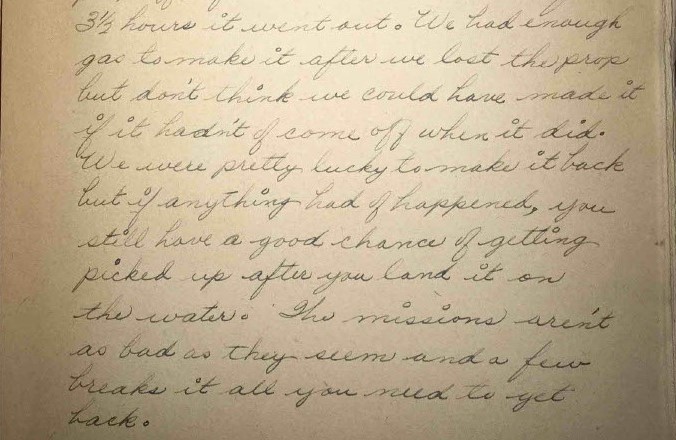 3½ hours it went out. We had enough
gas to make it after we lost the prop
but don't think we could have made it
if it hadn't of come off when it did.
We were pretty lucky to make it back
but if anything had of happened, you
still have a good chance of getting
picked up after you land it on
the water. The missions aren't
as bad as they seem and a few
breaks it all you need to get
back.